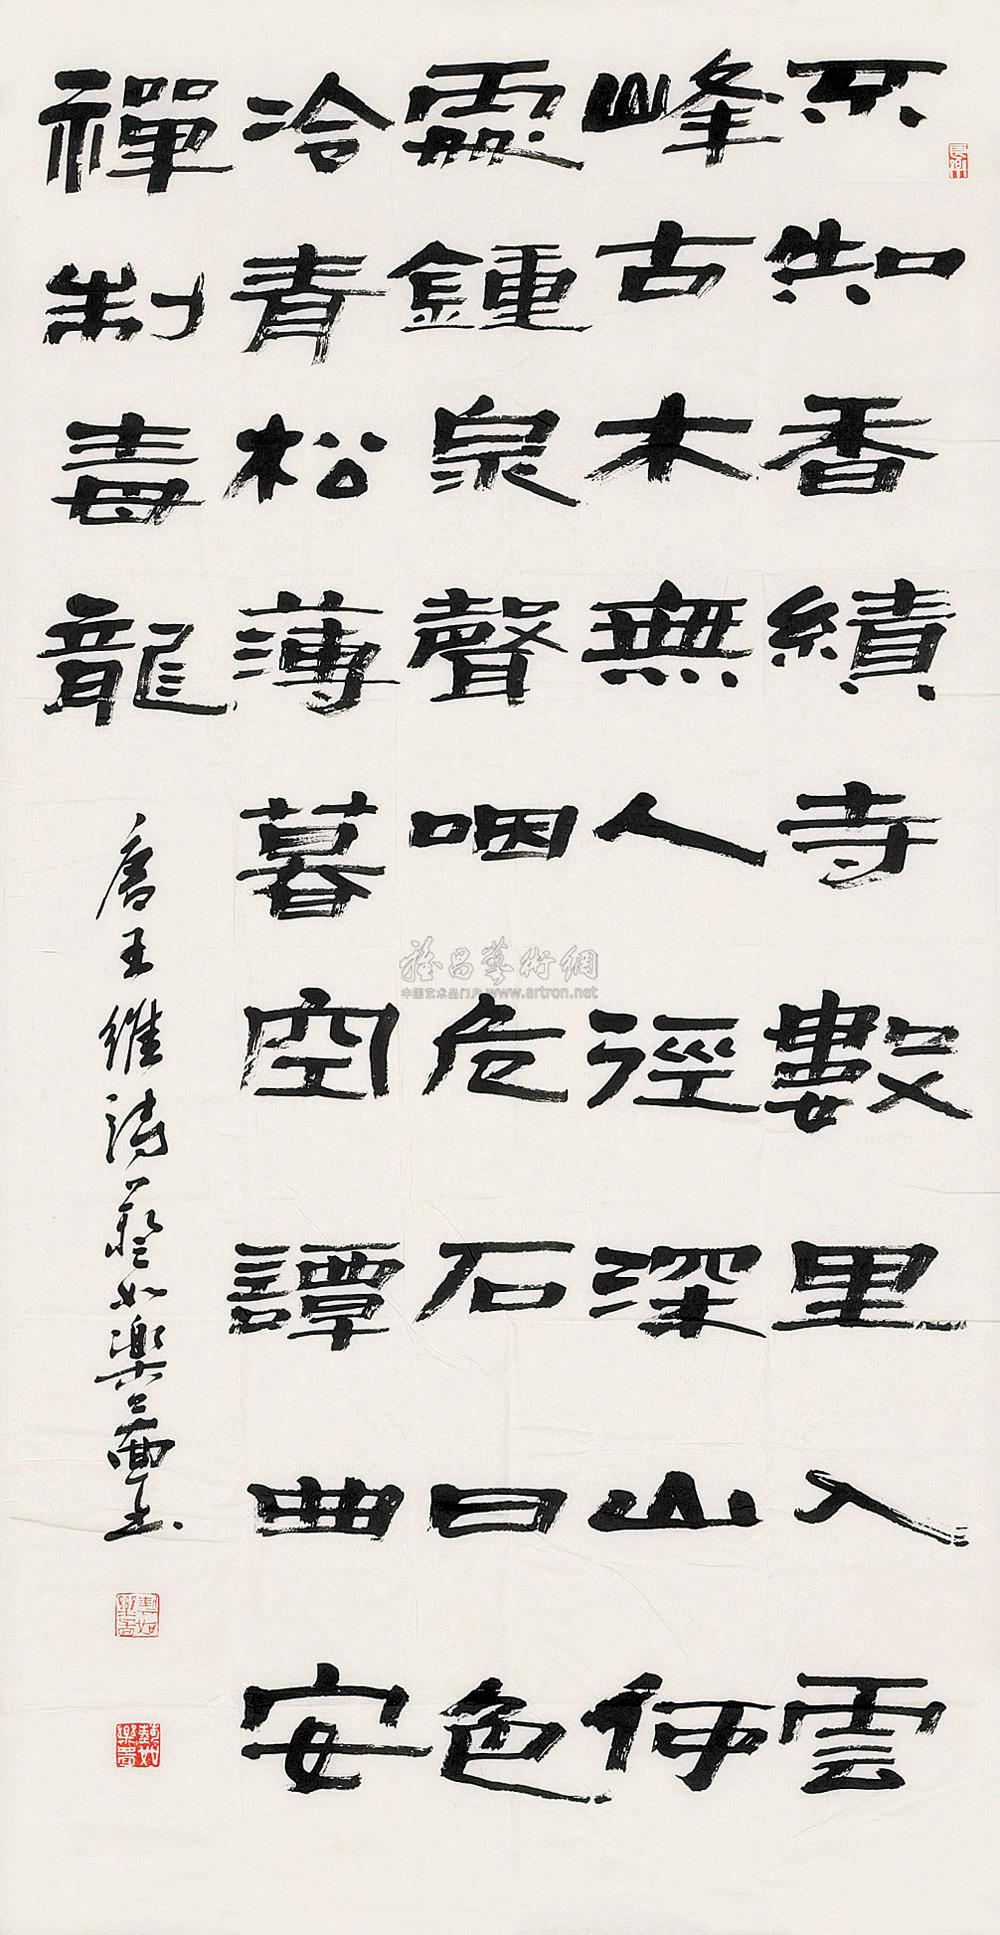 不知香績寺數里入雲
峰古木無人徑深山何
處鍾泉聲咽危石日色
冷青松薄暮空譚曲安
禪制毒龍
唐王維詩
雅昌藝術網
中国艺术品门户 www.artron.net